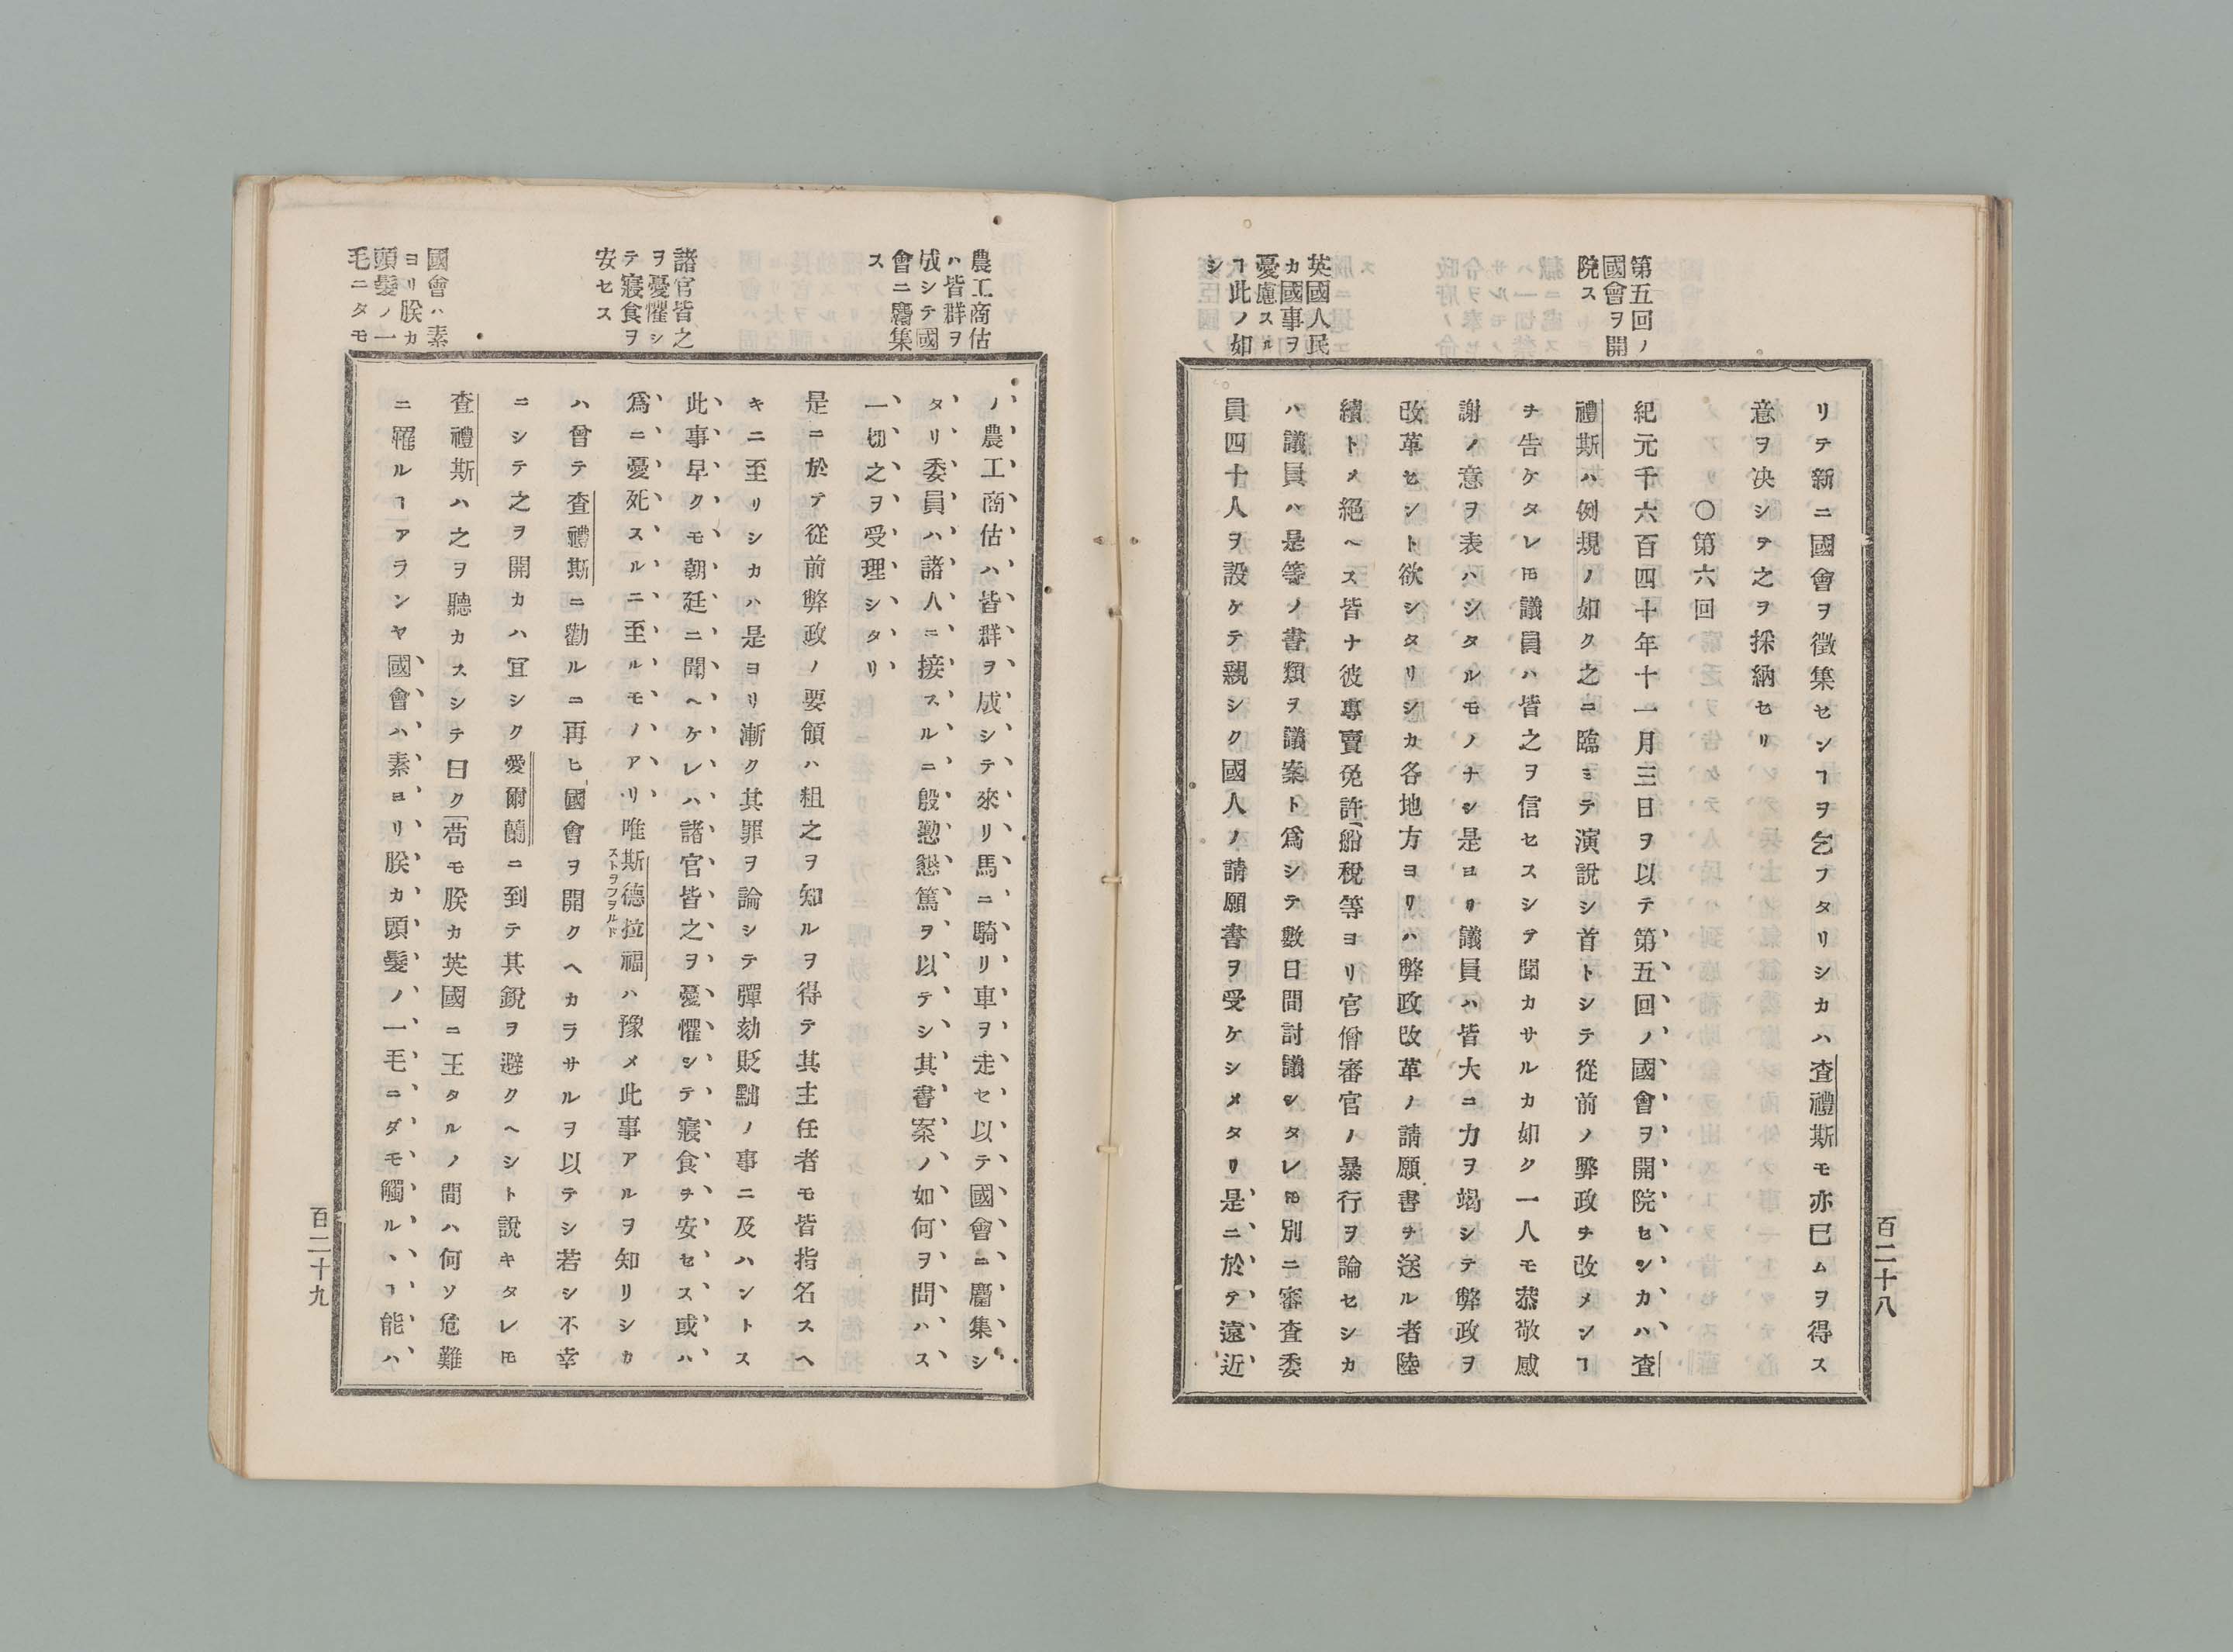 第五回ノ
國會ヲ開
院ス
英國人民
カ國事ヲ
憂慮スル
ヿ此ノ如
シ
リテ新ニ國會ヲ徵集センヿヲ乞フタリシカハ査禮斯モ亦已ムヲ得ス
意ヲ决シテ之ヲ採納セリ
〇第六回
紀元千六百四十年十一月三日ヲ以テ第五回ノ國會ヲ開院セシカハ査
禮斯ハ例規ノ如ク之ニ臨ミテ演說シ首トシテ從前ノ弊政ヲ改メンヿ
ヲ告ケタレ𪜈議員ハ皆之ヲ信セスシテ聞カサルカ如ク一人モ恭敬感
謝ノ意ヲ表ハシタルモノナシ是ヨリ議員ハ皆大ニ力ヲ竭シテ弊政ヲ
改革セント欲シタリシカ各地方ヨリハ弊政改革ノ請願書ヲ送ル者陸
續トメ絕ヘス皆ナ彼專賣免許船稅等ヨリ官僧審官ノ暴行ヲ論セシカ
ハ議員ハ是等ノ書類ヲ議案ト爲シテ數日間討議シタレ𪜈別ニ審査委
員四十人ヲ設ケテ親シク國人ノ請願書ヲ受ケシメタリ是ニ於テ遠近
百二十八
農工商估
ハ皆群ヲ
成シテ國
會ニ麕集
ス
諸官皆之
ヲ憂懼シ
テ寢食ヲ
安セス
國會ハ素
ヨリ朕カ
頭髮ノ一
毛ニタモ
ノ農工商估ハ皆群ヲ成シテ來リ馬ニ騎リ車ヲ走セ以テ國會ニ麕集シ
タリ委員ハ諸人ニ接スルニ殷懃懇篤ヲ以テシ其書案ノ如何ヲ問ハス
一切之ヲ受理シタリ
是ニ於テ從前弊政ノ要領ハ粗之ヲ知ルヲ得テ其主任者モ皆指名スヘ
キニ至リシカハ是ヨリ漸ク其罪ヲ論シテ彈劾貶黜ノ事ニ及ハントス
此事早クモ朝廷ニ聞ヘケレハ諸官皆之ヲ憂懼シテ寢食ヲ安セス或ハ
爲ニ憂死スルニ至ルモノアリ唯斯德拉福ハ豫メ此事アルヲ知リシカ
ストヲフヲルド
ハ曾テ査禮斯ニ勸ルニ再ヒ國會ヲ開クヘカラサルヲ以テシ若シ不幸
ニシテ之ヲ開カハ宜シク愛爾蘭ニ到テ其銳ヲ避クヘシト說キタレ𪜈
査禮斯ハ之ヲ聽カスシテ曰ク「苟モ朕カ英國ニ王タルノ間ハ何ソ危難
ニ罹ルヿアランヤ國會ハ素ヨリ朕カ頭髮ノ一毛ニダモ觸ルヽヿ能ハ
百二十九